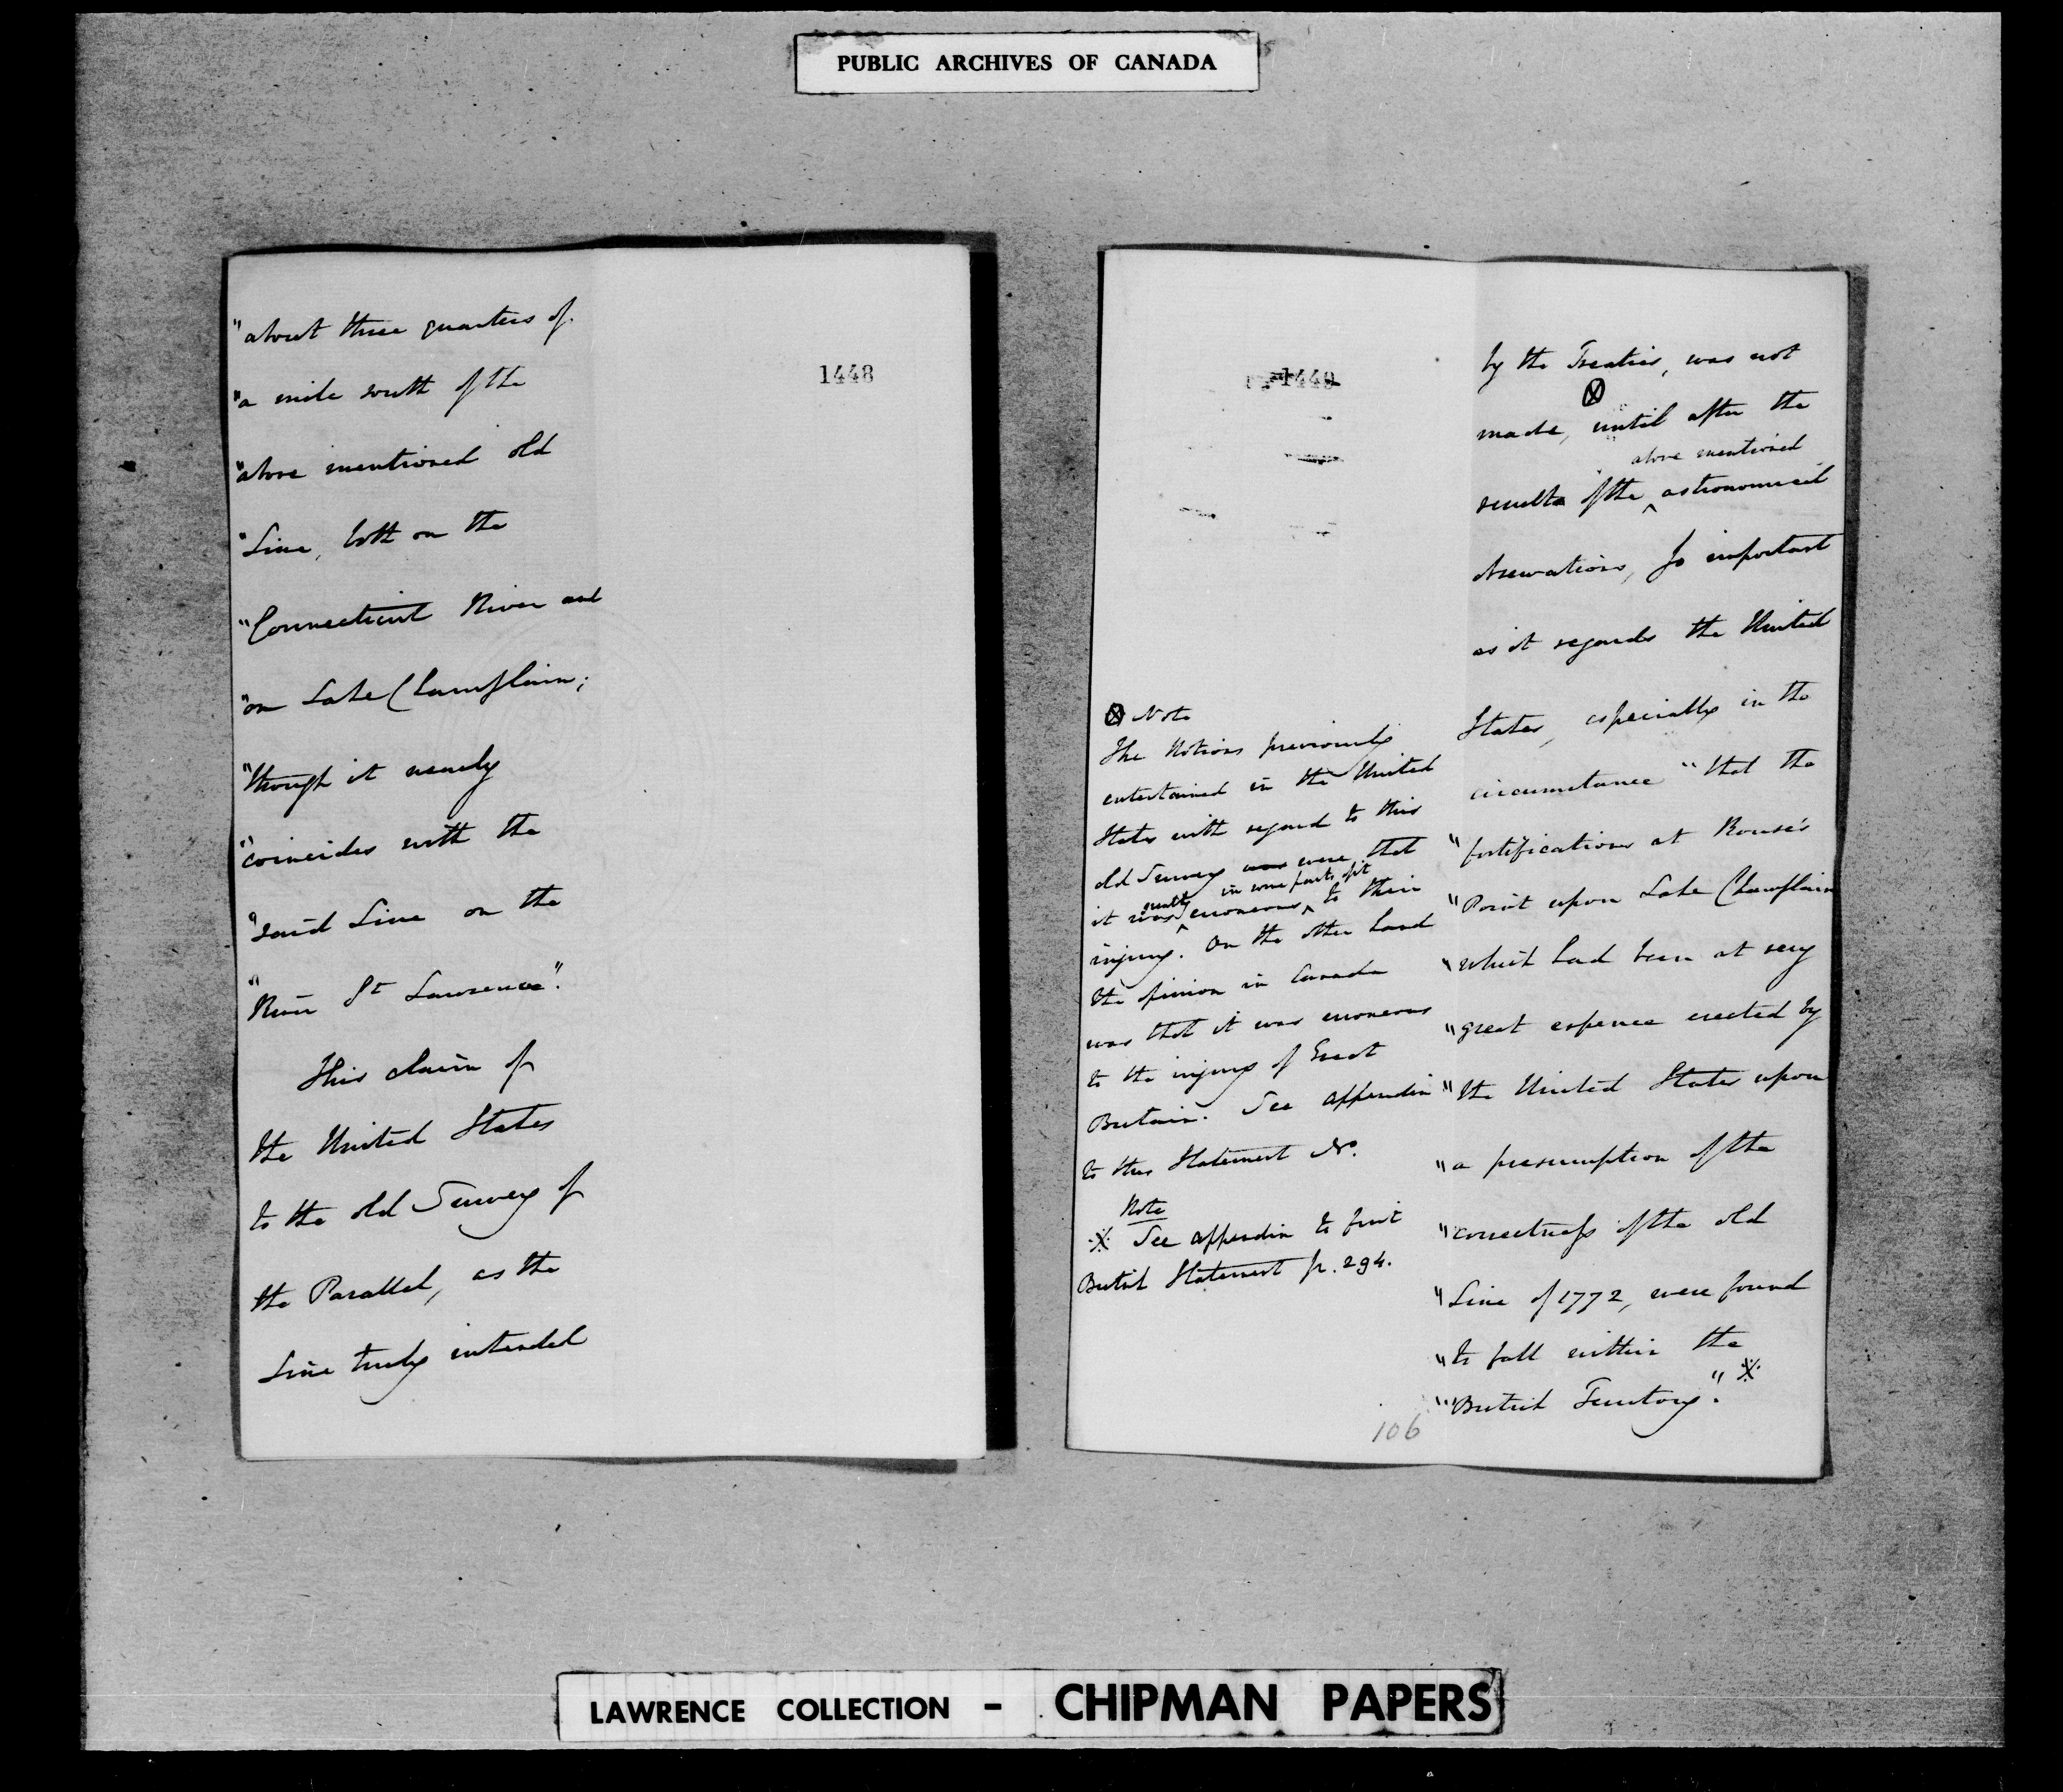 PUBLIC ARCHIVES OF CANADA
1448
"about three quarters of
"a mile south of the
"above mentioned old
"Line, both on the
"Connecticut River and
"on Lake Champlain;
"though it nearly
"coincides with the
"said Line on the
"River St Lawrence".
This claim of
the United States
to the old Survey of
the Parallel, as the
Line truly intended
1449
by the Treaties, was not
made, ⊗ until after the
above mentioned
results of the ^ astronomical
observations, so important
as it regards the United
States, especially in the
circumstance "that the
"fortifications at Rouse's
"Point upon Lake Champlain
"which had been at very
"great expence erected by
"the United States upon
"a presumption of the
"correctness of the old
"Line of 1772, were found
"to fall within the
"British Territory". ※
⊗ Note
The Notions previously
entertained in the United
States with regard to this
old Survey was were that
in some parts of it
it was ^ erroneous ^ to their
injury. On the other hand
the opinion in Canada
was that it was erroneous
to the injury of Great
Britain. See appendix
to this Statement No.
Note
※ See appendix to first
British Statement p. 294.
106
LAWRENCE COLLECTION - CHIPMAN PAPERS